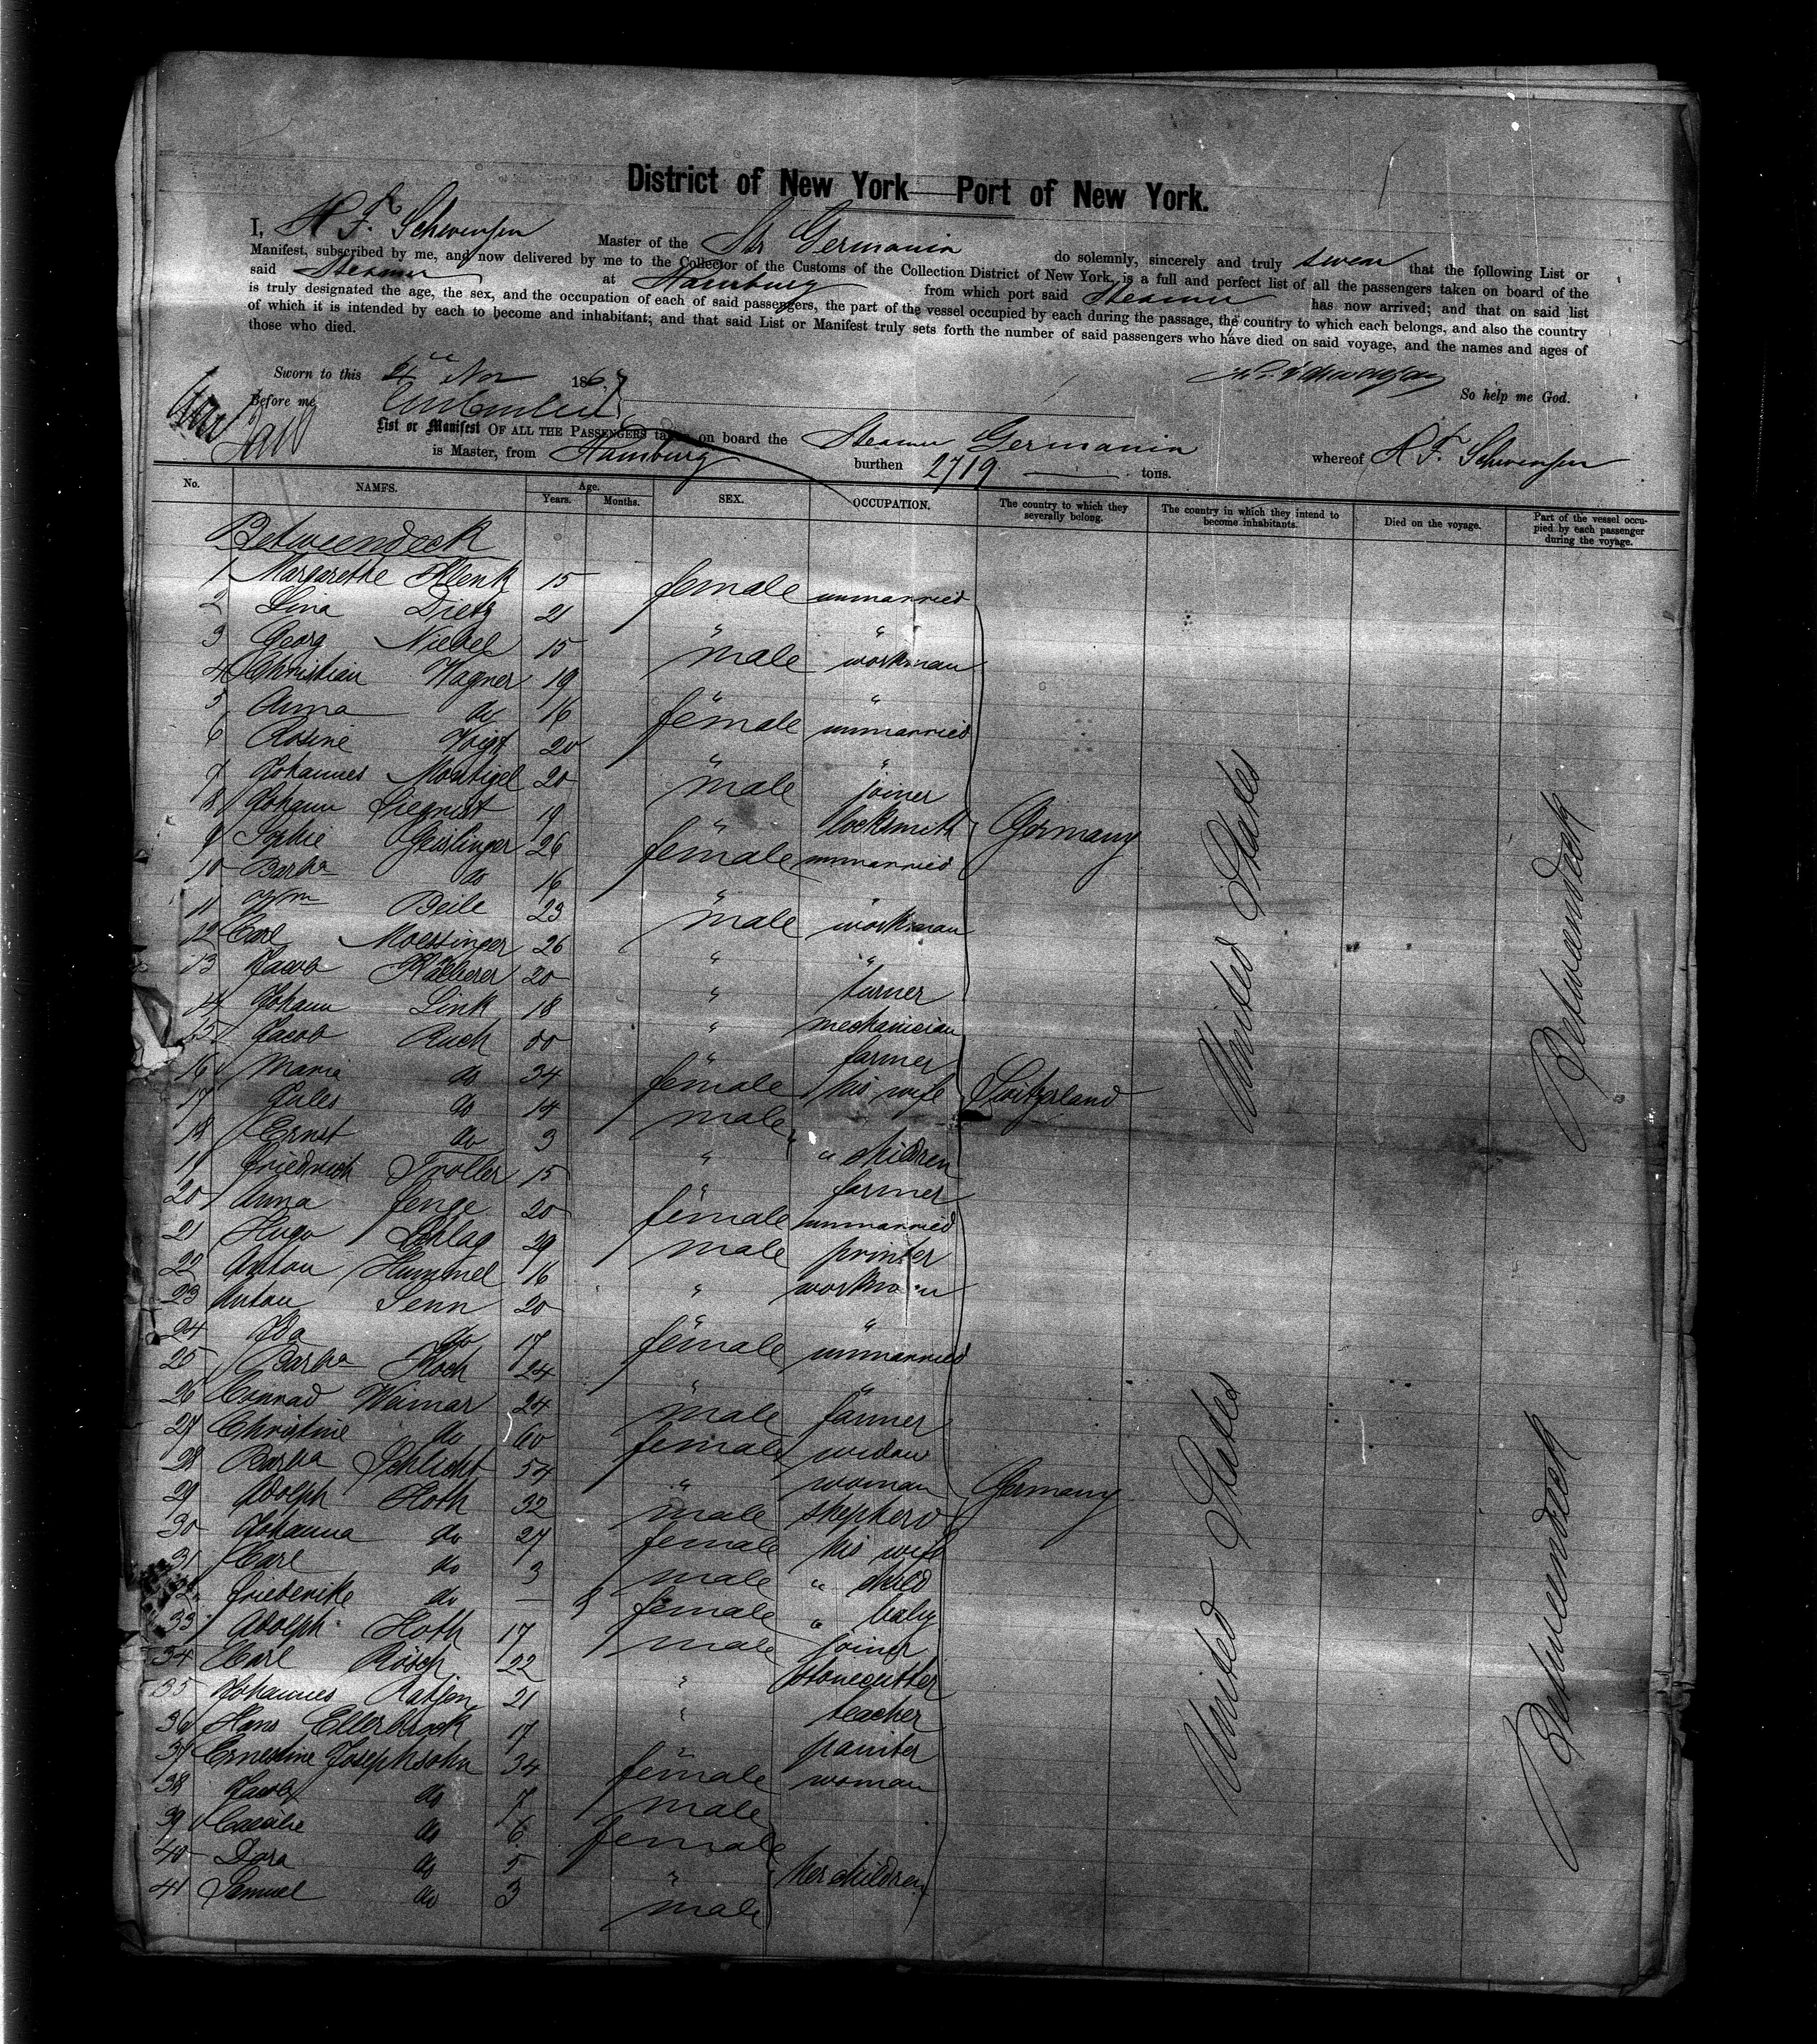 District of New York—Port of New York.
I, H. F. Schwensen Master of the Str Germania do solemnly, sincerely and truly swear that the following List or
Manifest, subscribed by me, and now delivered by me to the Collector of the Customs of the Collection District of New York, is a full and perfect list of all the passengers taken on board of the
said Steamer at Hamburg from which port said Steamer has now arrived; and that on said list
is truly designated the age, the sex, and the occupation of each of said passengers, the part of the vessel occupied by each during the passage, the country to which each belongs, and also the country
of which it is intended by each to become and inhabitant; and that said List or Manifest truly sets forth the number of said passengers who have died on said voyage, and the names and ages of
those who died.
Sworn to this Nov 186 So help me God.
Before me
List or Manifest OF ALL THE PASSENGERS taken on board the Steamer Germania whereof H. F. Schwensen
is Master, from Hamburg burthen 2719 tons.
No. NAMES. Age. Years. Months. SEX. OCCUPATION. The country to which they severally belong. The country in which they intend to become inhabitants. Died on the voyage. Part of the vessel occupied by each passenger during the voyage.
Betweendeck
1 Margarethe Klenk 15 female unmarried
2 Lina Dietz 21 " "
3 Georg Niebel 15 male workman
4 Christian Wagner 19 " "
5 Anna do 16 female unmarried
6 Rosine Voigt 20 " "
7 Johannes Montigel 20 male joiner
8 Johann Siegrist 19 " locksmith Germany United States Betweendeck
9 Sophie Geislinger 26 female unmarried
10 Barba do 16 "
11 Wm Beile 23 male workman
12 Carl Moessinger 26 " "
13 Jacob Kächerer 20 " turner
14 Johann Link 18 " mechanician
15 Jacob Ruch farmer
16 Maria do 34 female his wife Switzerland
17 Jules do 14 male
18 Ernst do 3 " " children
19 Friedrich Troller 15 " farmer
20 Anna Jenge 20 female unmarried
21 Hugo Schlag 29 male printer
22 Anton Hummel 16 " workman
23 Anton Senn 20 " "
24 Ida do 17 female unmarried
25 Barba Koch 24 " "
26 Conrad Weimar 24 male farmer
27 Christine do 60 female widow
28 Barba Schlicht 54 " woman Germany United States Betweendeck
29 Adolph Hoth 32 male shepherd
30 Johanna do 27 female his wife
31 Carl do 3 male " child
32 Friederike do — female " baby
33 Adolph Hoth 17 male joiner
34 Carl Rösch 22 " stonecutter
35 Johannes Ratjen 21 " teacher
36 Hans Ellerbrock 17 " painter
37 Ernestine Josephsohn 34 female woman
38 Jacob do 7 male
39 Caecilie do 6 female
40 Dora do 5 " her children
41 Samuel do 3 male